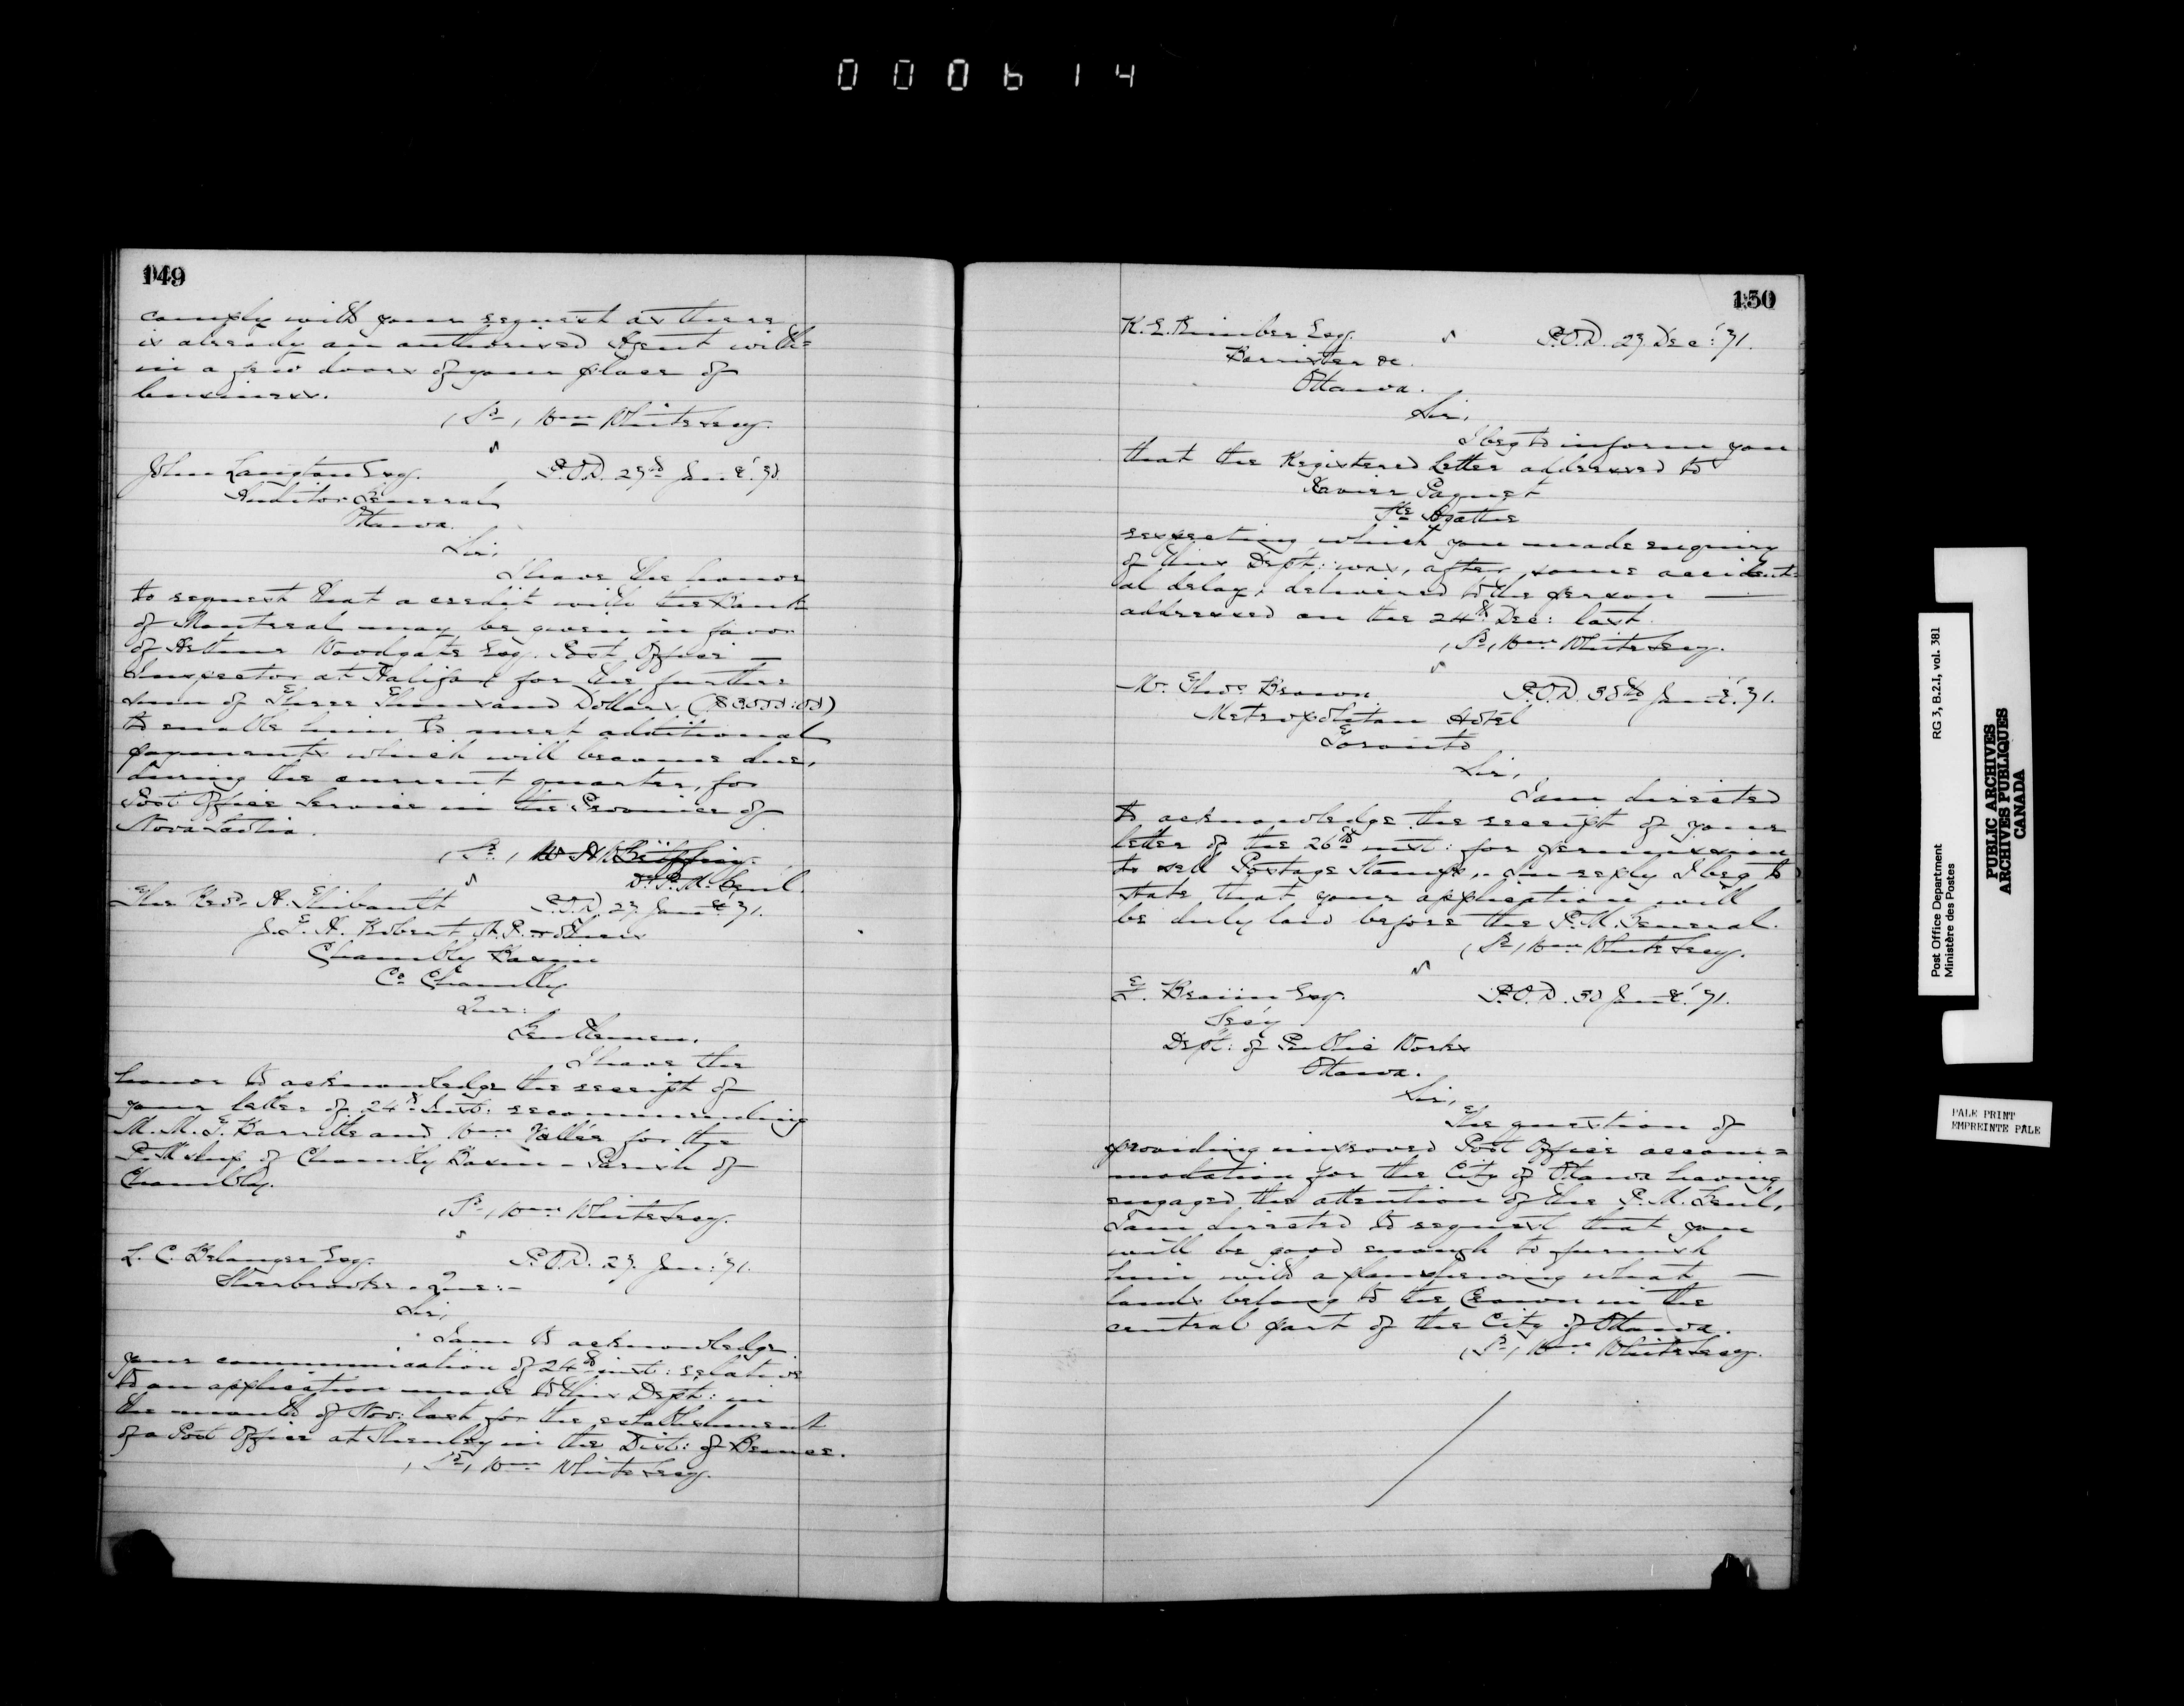 000614
149
comply with your request as there
is already an authorised Agent with=
in a few doors of your place of
business.
(Sd) Wm White Secy.
John Langton Esq. P.O.D. 27th Jany '71.
Auditor General
Ottawa.
Sir,
I have the honor
to request that a credit with the Bank
of Montreal may be given in favor
of Arthur Woodgate Esq. Post Office
Inspector at Halifax for the further
sum of Three Thousand Dollars ($3000:00)
to enable him to meet additional
payments which will become due,
during the current quarter, for
Post Office Service in the Province of
Nova Scotia.
(Sd) W H Griffin
D. P. M. Genl.
The Revd. A. Thibault P.O.D. 27 Jany '71.
J. E. A. Robert N.P. & others
Chambly Basin
Co Chambly
Que:
Gentlemen,
I have the
honor to acknowledge the receipt of
your letter of 24th Inst: recommending
M. M. T. Barrette and Wm Vallée for the
P.Mship of Chambly Basin - Parish of
Chambly.
(Sd) Wm White Secy.
L. C. Belanger Esq. P.O.D. 27. Jan: '71.
Sherbrooke. Que:-
Sir,
I am to acknowledge
your communication of 24th inst: relative
to an application made to this Dept: in
the month of Nov: last for the establishment
of a Post Office at Shenley in the Dist: of Beauce.
(Sd) Wm White Secy.
150
K. E. Kimber Esq. P.O.D. 27. Dec: '71.
Barrister &c.
Ottawa.
Sir,
I beg to inform you
that the Registered Letter addressed to
Xavier Paquet
Ste Agathe
respecting which you made enquiry
of this Dept: was, after some accident=
al delay, delivered to the person
addressed on the 24th Dec: last.
(Sd) Wm White Secy.
Mr. Thos. Brown P.O.D. 30th Jany '71.
Metropolitan Hotel
Toronto
Sir,
I am directed
to acknowledge the receipt of your
letter of the 26th inst: for permission
to sell Postage Stamps, In reply I beg to
state that your application will
be duly laid before the P.M. General.
(Sd) Wm White Secy.
F. Braün Esq. P.O.D. 30 Jany '71.
Secy
Dept: of Public Works
Ottawa.
Sir,
The question of
providing improved Post Office accom=
modation for the City of Ottawa having
engaged the attention of the P. M. Genl,
I am directed to request that you
will be good enough to furnish
him with a plan shewing what
lands belong to the Crown in the
central part of the City of Ottawa.
(Sd) Wm White Secy.
Post Office Department RG 3, B.2.I, vol. 381
Ministère des Postes
PUBLIC ARCHIVES
ARCHIVES PUBLIQUES
CANADA
PALE PRINT
EMPREINTE PALE